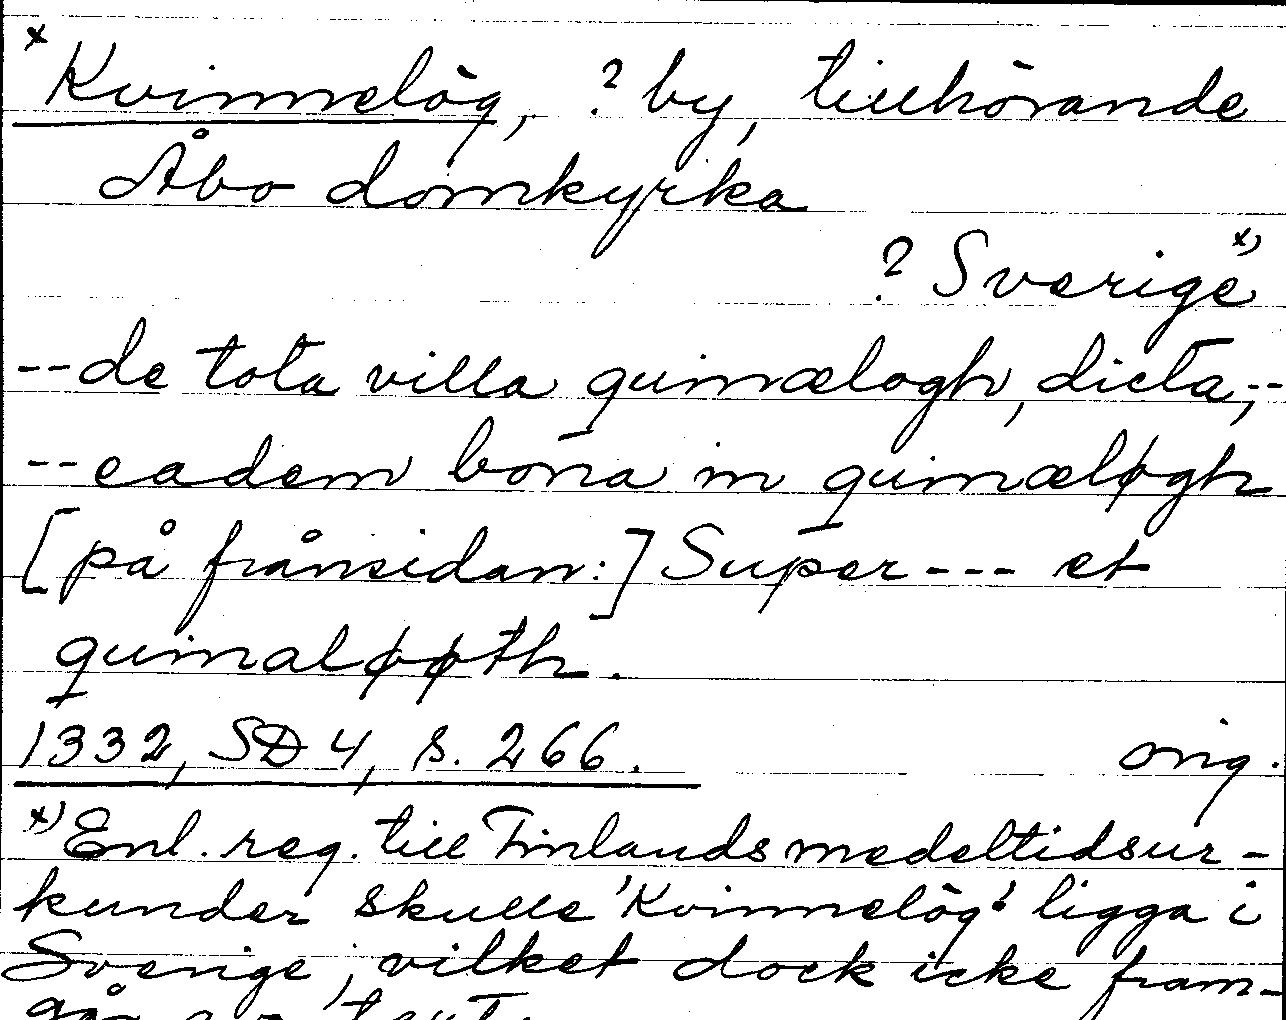 x Kvinnelög, ? by, tillhörande
Åbo domkyrka
? Sverige x)
--de tota villa quinnælogh, dicta,--
--eadem bona in quinæløgh
[på frånsidan:] Super --- et
quinaløøth.
1332, SD 4, s. 266. orig.
x) Enl. reg. till Finlands medeltidsur-
kunder skulle 'Kvinnelög' ligga i
Sverige, vilket dock icke fram-
går av text.